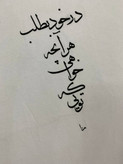 در خود بطلب
هر آنچه
خواهی
که
تویی